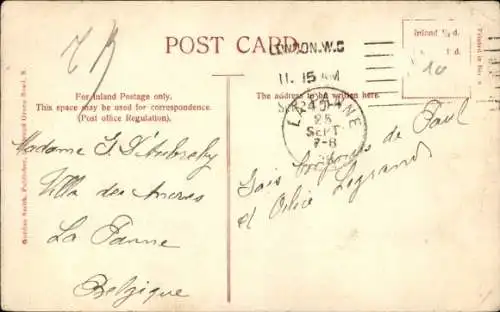 POST CARD
LONDON.W.C
11. 15 AM
Inland ½ d.
For Inland Postage only.
This space may be used for correspondence.
(Post office Regulation).
The address to be written here.
LA PANNE
25
SEPT
7-8
Madame
Villa des
La Panne
Belgique
de Paul
et Legrand
Gordon Smith, Publisher,
Printed in